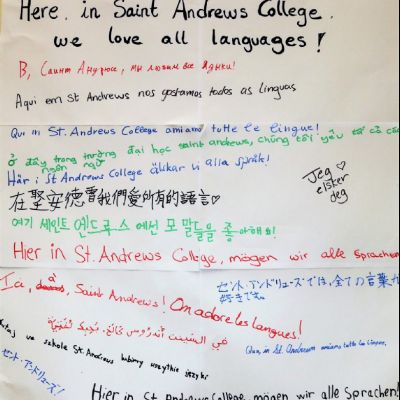 Here, in Saint Andrews College,
we love all languages!
В, Саинт Андрюсе, мы любим все языки!
Aqui em St Andrews nos gostamos todas as linguas
Qui in St. Andrews College amiamo tutte le lingue!
ở đây trong trường đại học saint andrews, chúng tôi yêu tất cả các
ngôn ngữ
Här i St Andrews College älskar vi alla språk!
Jeg
elsker
deg
在堅安德魯我們愛所有的語言♡
여기 세인트 엔드류스 에선 모 말들을 좋아해요!
Hier in St. Andrews College, mögen wir alle Sprachen
Ici, à Saint Andrews! On adore les langues!
セント・アンドリューズでは、全ての言葉が
好きです。
في السينت أندروس كالج، نحب كل
w szkole St. Andrews lubimy wszystkie języki
Qui, in St. Andrews amiamo tutte le lingue.
セント・アンドリューズ!
Hier in St Andrews College, mögen wir alle Sprachen!